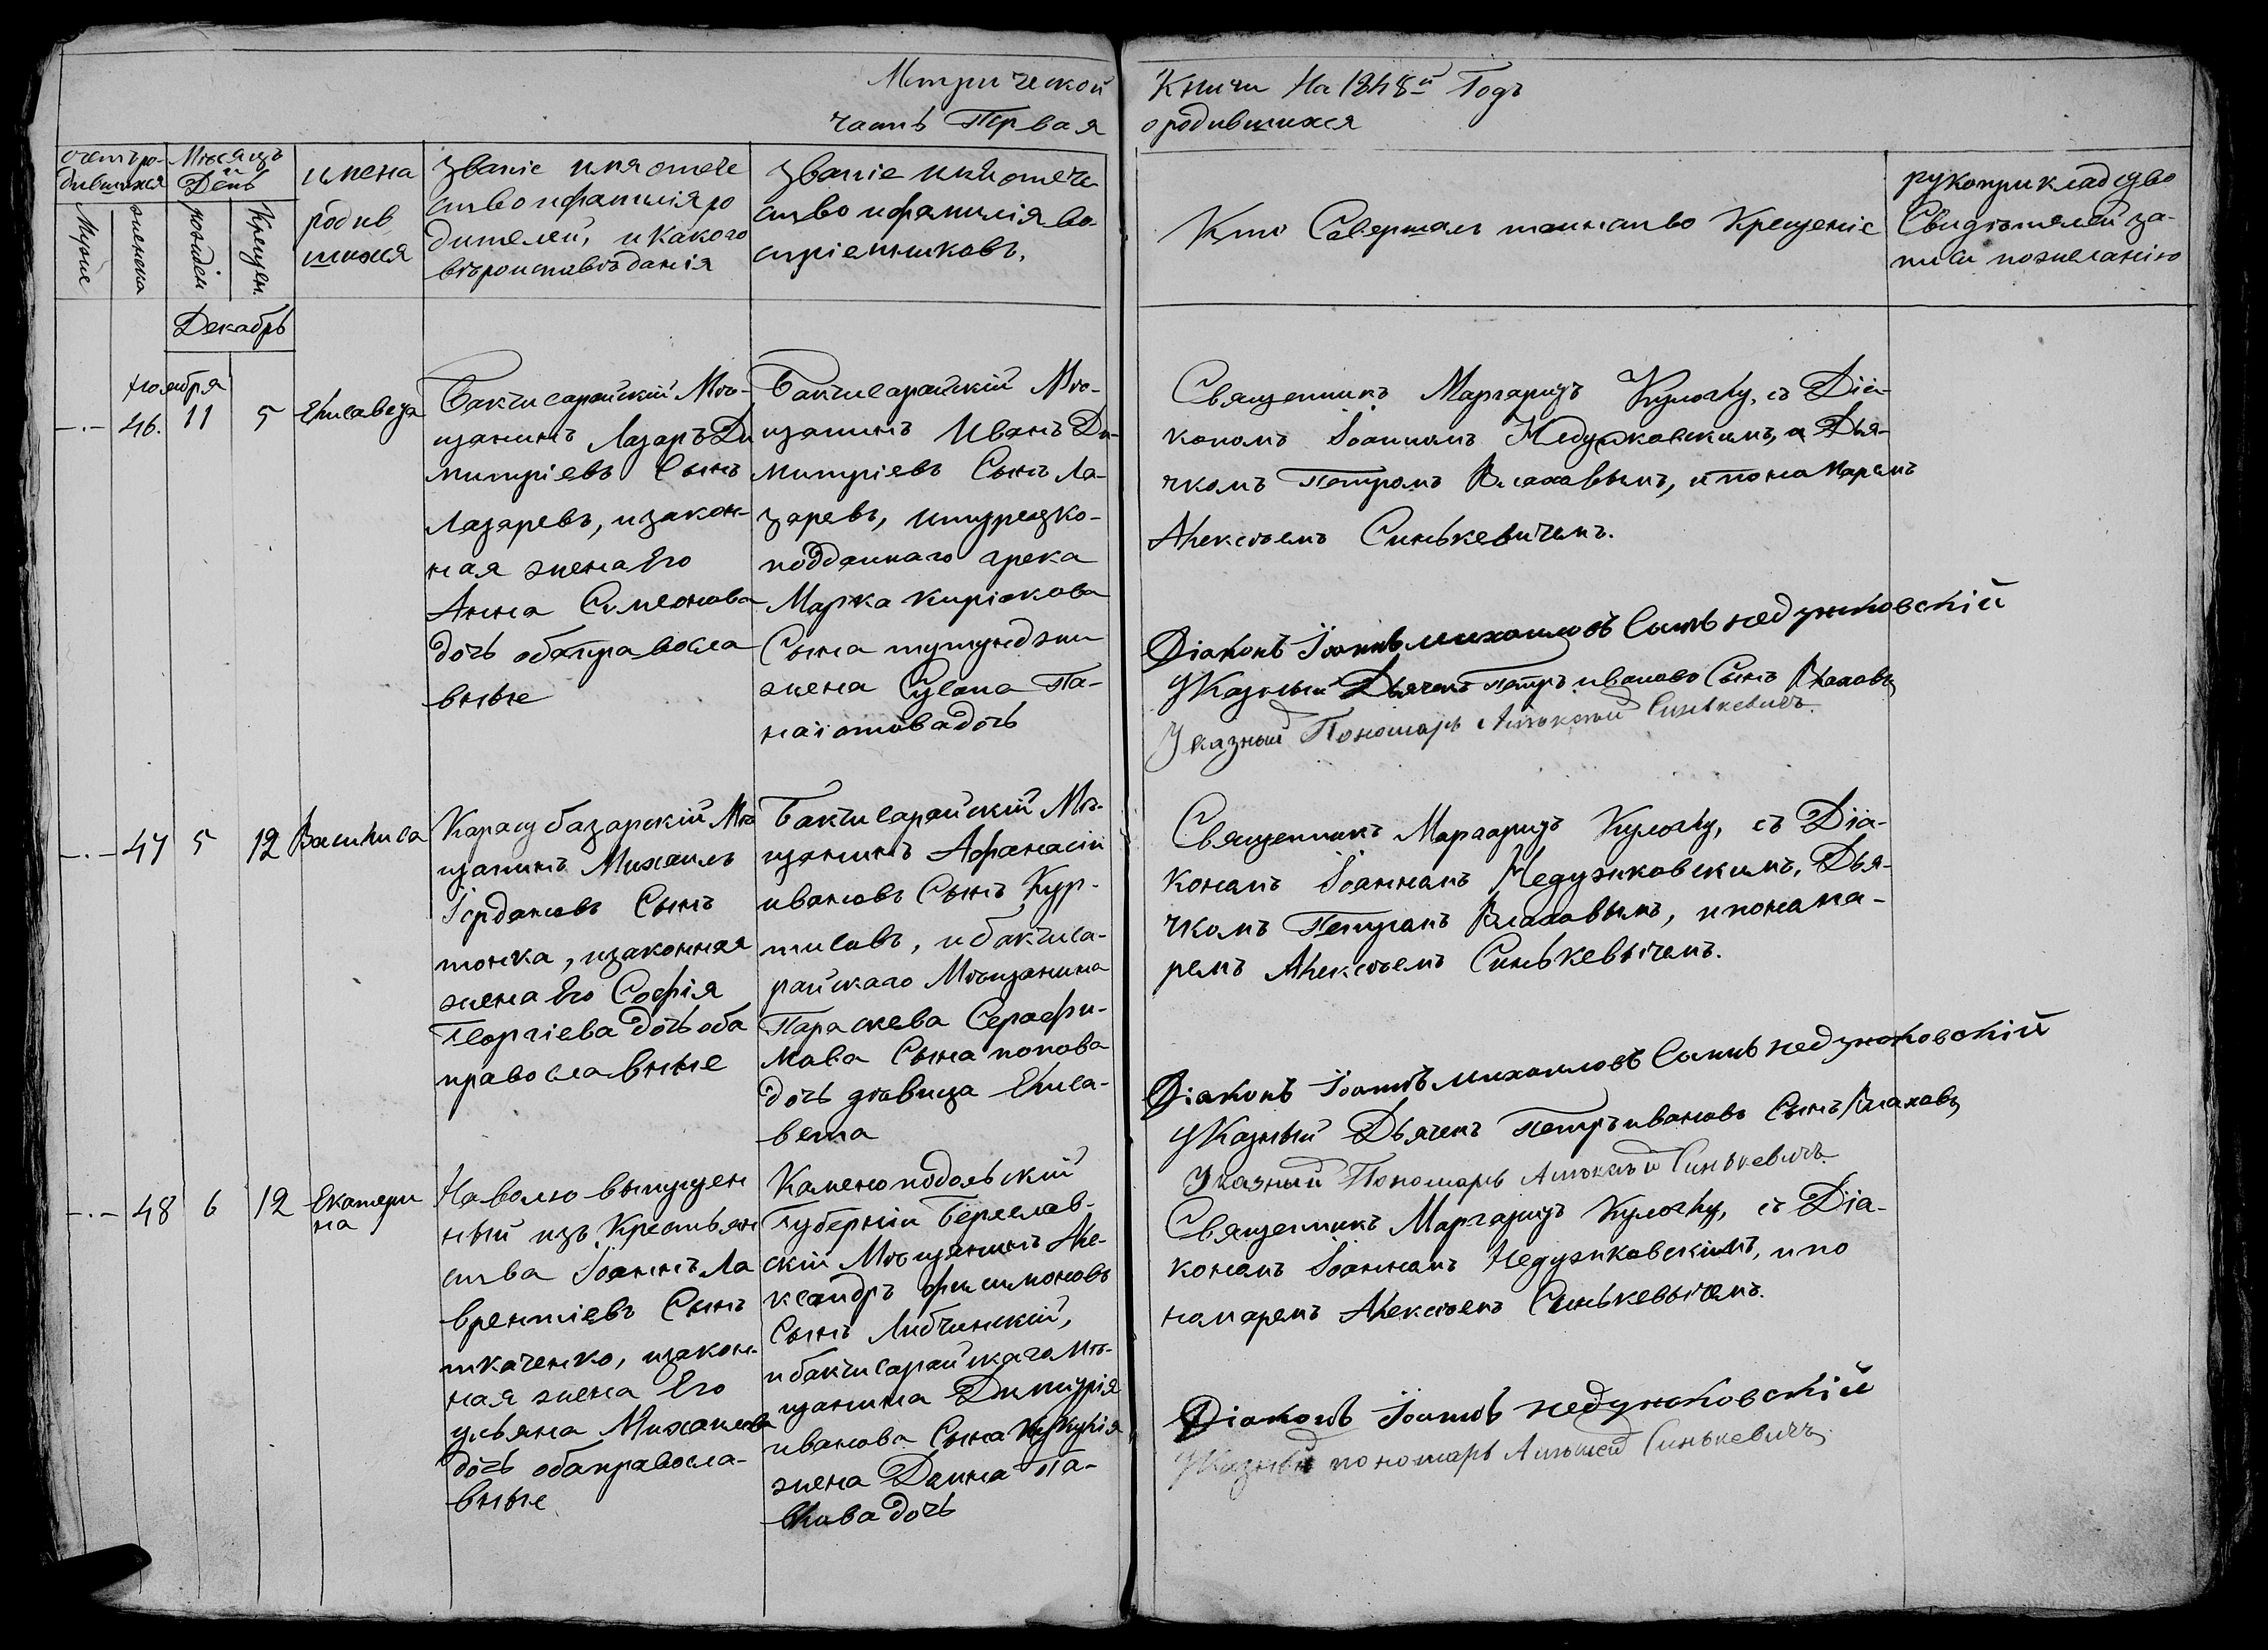 Метрической Книги На 1848й Годъ
часть Первая о родившихся
счетъ ро-
дившихся
Муже
женска
Мѣсяцъ
и
День
рожден
Крещен.
имена
родив
шихся
Званіе имя отече
ство и фамилія ро
дителей, и какого
вѣроисповѣданія
Званіе имя отече
ство и фамилія во-
спріемниковъ.
Кто Совершалъ таинство Крещеніе
рукоприкладсдво
Свидѣтелей за-
писи по желанію
Декабрь
ноября
-.- 46. 11 5
Елисавеѳа
Бакчисарайскій Мѣ-
щанинъ Лазаръ Ди
митріевъ Сынъ
Лазаревъ, изакон-
ная жена Его
Анна Симеонова
дочь оба правосла
вные
Бакчисарайскій Мѣ-
щанинъ Иванъ Ди-
митріевъ Сынъ Ла-
заревъ, итурецко-
подданнаго грека
Марка Киріакова
Сына тутунджи
жена Сусана Па-
наіотова дочь
Священникъ Маргаридъ Кулочлу, съ Діа-
кономъ Іоанномъ Недужковскимъ, и Дья-
чкомъ Петромъ Влаховымъ, и понамаремъ
Алексѣемъ Синькевичемъ.
Діаконъ Іоаннъ михаиловъ Сынъ недужковскій
Указный Дьячекъ Петръ иваново Сынъ Влаховъ
Указный Пономарь Алѣксѣй Синькевичъ.
-.- 47 5 12
Василиса
Карасубазарскій Мѣ
щанинъ Михаилъ
Іордановъ Сынъ
тонка, изаконная
жена Его Софія
Георгіева дочь оба
православные
Бакчисарайскій Мѣ-
щанинъ Афанасій
ивановъ Сынъ Кур-
тисовъ, и бакчиса-
райскаго Мѣщанина
Параскева Серафи-
мова Сына попова
дочь дѣвица Елиса-
вета
Священникъ Маргаридъ Кулочлу, съ Діа-
кономъ Іоанномъ Недужковскимъ, Дья-
чкомъ Петромъ Влаховымъ, и понама-
ремъ Алексѣемъ Синькевичемъ.
Діаконъ Іоаннъ михаиловъ Сынъ недужковскій
Указный Дьячекъ Петръ ивановъ Сынъ Влаховъ
Указный Пономарь Алѣксѣй Синькевичъ.
-.- 48 6 12
Екатери
на
На волю выпущен
ный изъ Крестьян
ства Іоаннъ Ла
врентіевъ Сынъ
ткаченко, изакон-
ная жена Его
ульяна Михаилова
дочь оба правосла-
вные
Каменоподольскій
Губерніи Береслав-
скій Мѣщанинъ Але-
ксандръ филимоновъ
Сынъ Либчинскій,
и бакчисарайскаго Мѣ-
щанина Димитрія
иванова Сына
жена Домна Па-
влова дочь
Священникъ Маргаридъ Кулочлу, съ Діа-
кономъ Іоанномъ Недужковскимъ, и по
намаремъ Алексѣемъ Синькевичемъ.
Діаконъ Іоаннъ недужковскій
Указный пономарь Алѣксѣй Синькевичъ.